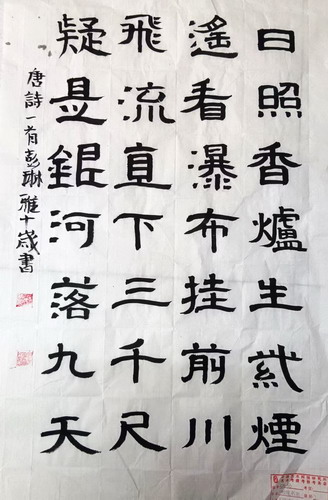 日照香爐生紫煙
遙看瀑布挂前川
飛流直下三千尺
疑是銀河落九天
唐詩一首彭琳雅十歲書